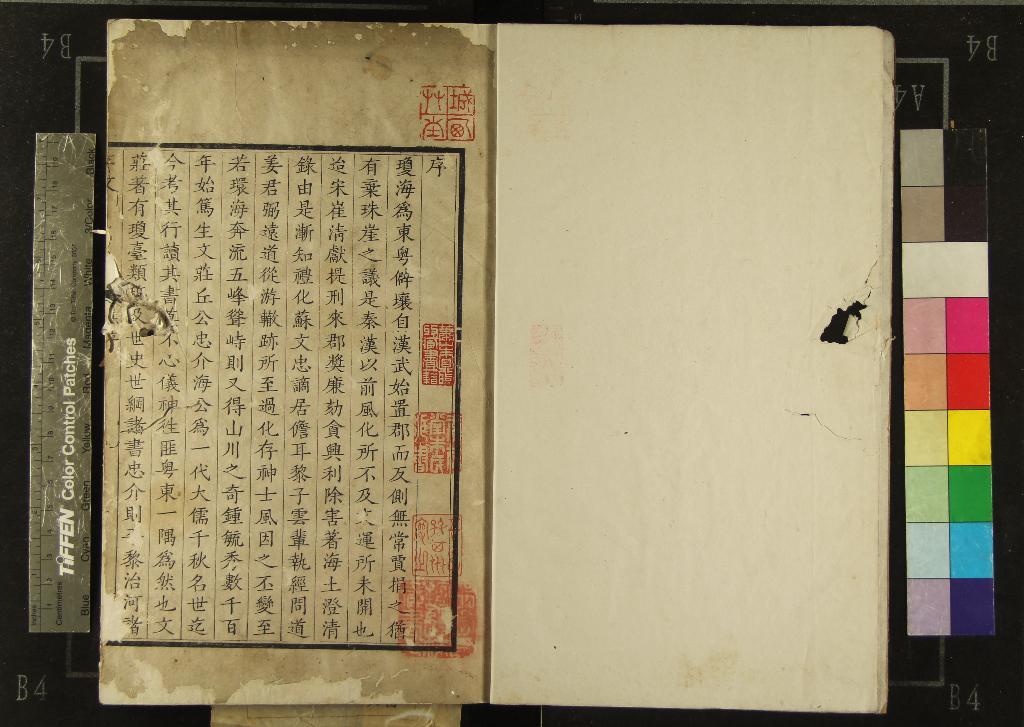 序
瓊海爲東粤僻壤自漢武始置郡而反側無常賈捐之猶
有棄珠崖之議是秦漢以前風化所不及文運所未開也
迨宋崔清獻提刑來郡奬廉劾貪興利除害著海上澄清
錄由是漸知禮化蘇文忠謫居儋耳黎子雲輩執經問道
姜君弼遠道從游轍跡所至過化存神士風因之丕變至
若環海奔流五峰聳峙則又得山川之奇鍾毓秀數千百
年始篤生文莊丘公忠介海公爲一代大儒千秋名世迄
今考其行讀其書不心儀神徃匪粤東一隅爲然也文
莊著有瓊臺類及世史世綱諸書忠介則黎治河諸
TIFFEN Color Control Patches
Blue
Cyan
Green
Yellow
Red
Magenta
White
3/Color
Black
Inches
Centimetres
B4
B4
A4
B4
B4